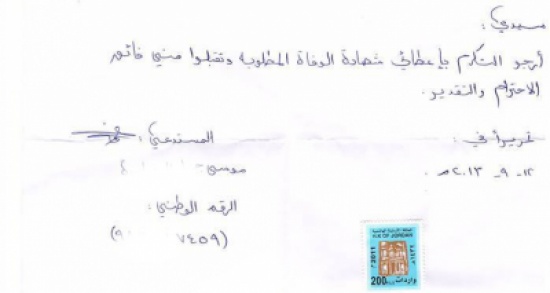 سيدي :
أرجو التكرم بإعطائي شهادة الوفاة المطلوبة وتقبلوا مني فائق
الاحترام والتقدير .
المستدعي :
موسى
الرقم الوطني :
(٩ ٧٤٥٩)
تحريراً في :
١٢ - ٩ - ٢٠١٣م .
المملكة الأردنية الهاشمية
H.K OF JORDAN
2011
200
واردات